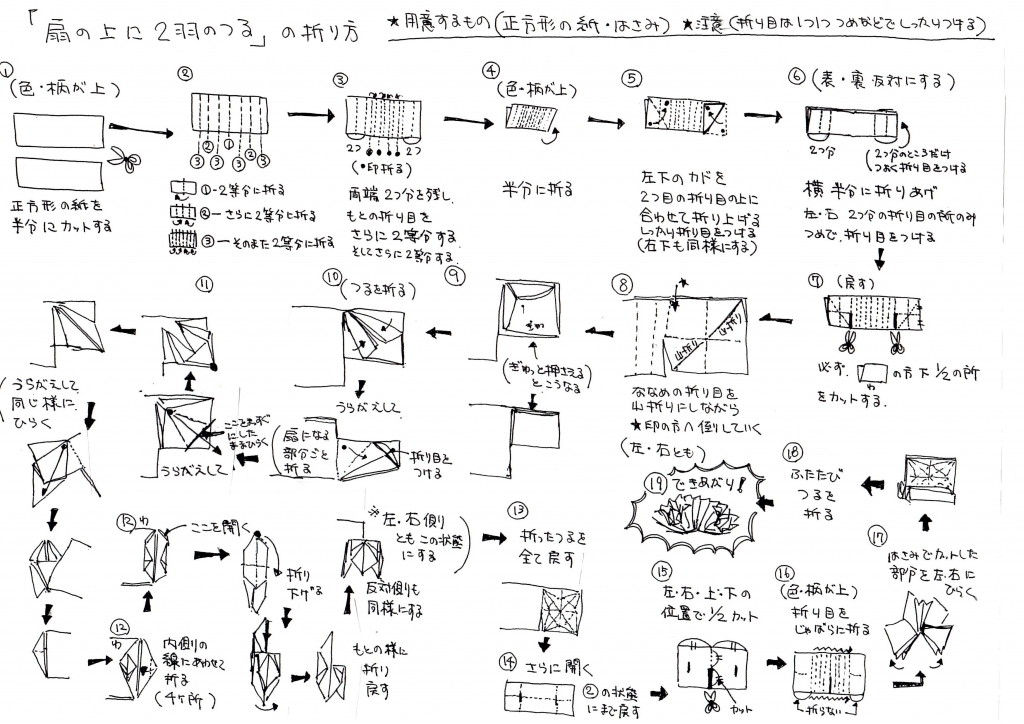 「扇の上に2羽のつる」の折り方
★用意するもの(正方形の紙・はさみ) ★注意(折り目は1つ1つつめなどでしっかりつける)
①
(色・柄が上)
正方形の紙を
半分にカットする
②
③ ② ③ ① ③ ② ③
①-2等分に折る
②-さらに2等分に折る
③-そのまた2等分に折る
③
2つ 2つ
(•印折る)
両端2つ分を残し、
もとの折り目を
さらに2等分する
そしてさらに2等分する。
④
(色・柄が上)
半分に折る
⑤
左下のカドを
2つ目の折り目の上に
合わせて折り上げる
しっかり折り目をつける
(右下も同様にする)
⑥ (表・裏反対にする)
2つ分
(2つ分のところだけ
つよく折り目をつける)
横半分に折りあげ
左・右 2つ分の折り目の所のみ
つめで、折り目をつける
⑦ (戻す)
必ず、
わ
の方下1/2の所
をカットする。
⑧
山折り
山折り
ななめの折り目を
山折りにしながら
★印の方へ倒していく
(左・右とも)
⑨
(ぎゅっと押さえる
とこうなる)
⑩ (つるを折る)
うらがえして
(扇になる
部分ごと
折る)
折り目を
つける
⑪
ここをまずぐ
にした
ままひらく
うらがえして
(うらがえして
同じ様に
ひらく
⑫ わ
内側の
線にあわせて
折る
(4ヶ所)
⑫ わ
ここを開く
折り
下げる
もとの様に
折り
戻す
反対側りも
同様にする
※左・右側り
ともこの状態
にする)
⑬
折ったつるを
全て戻す
⑭ さらに開く
②の状態
にまで戻す
⑮
左・右・上・下の
位置で1/2カット
カット
⑯
(色・柄が上)
折り目を
じゃばらに折る
折らない
⑰
はさみでカットした
部分を左・右に
ひらく
⑱
ふたたび
つるを
折る
⑲ できあがり!